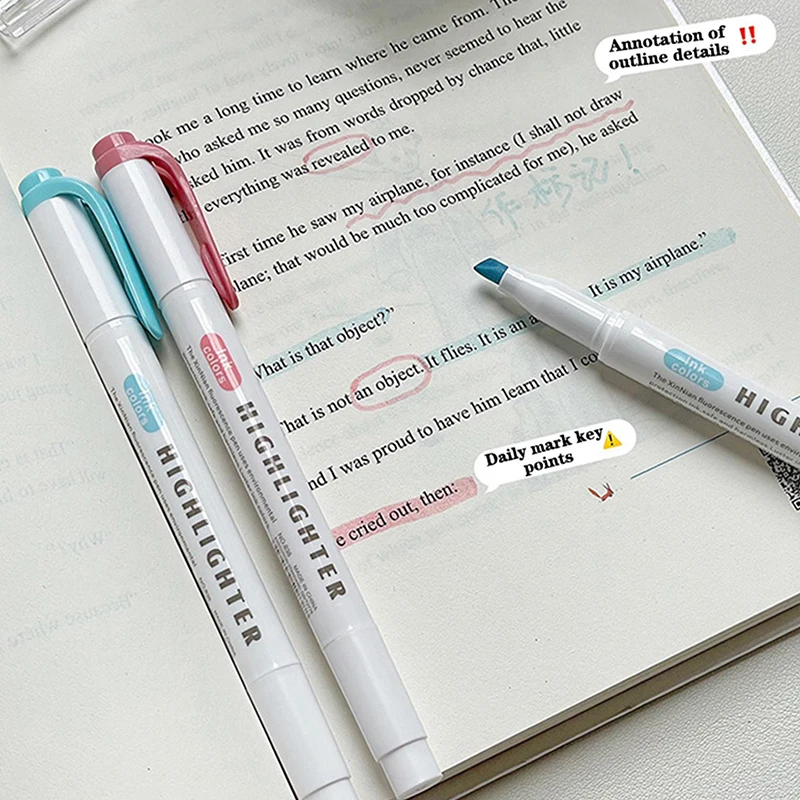 Annotation of
outline details ‼
ook me a long time to learn where he came from. The
who asked me so many questions, never seemed to hear the
ked him. It was from words dropped by chance that, little
everything was revealed to me.
irst time he saw my airplane, for instance (I shall not draw
lane; that would be much too complicated for me), he asked
作标记!
What is that object?"
That is not an object. It flies. It is an a It is my airplane."
nd I was proud to have him learn that I co
e cried out, then:
Daily mark key⚠
points
ink
colors
The XinNian fluorescence pen uses environmental
HIGHLIGHTER
MADE IN CHINA
ink
colors
The XinNian fluorescence pen uses environmental
HIGHLIGHTER
ink
colors
The XinNian fluorescence pen uses en
HIGH
"Why?"
"Because where